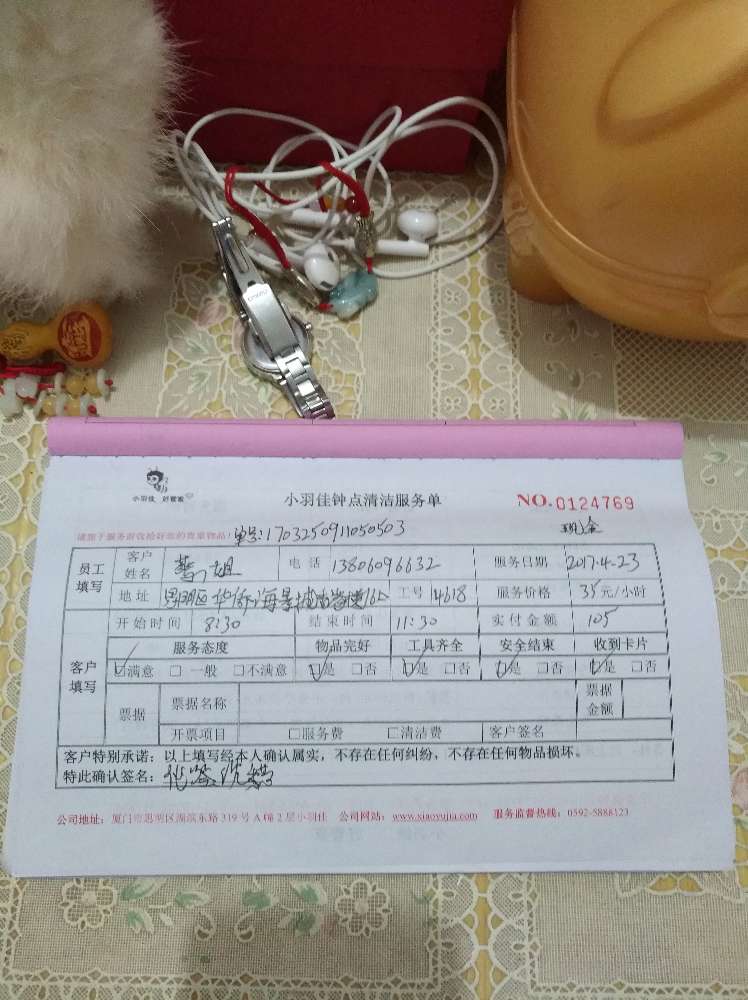 小羽佳 好管家
小羽佳钟点清洁服务单
NO.0124769
请阁下服务前收拾好您的贵重物品!
单号:1703250911050503
现金
员工填写
客户姓名 姐 电话 13806096632 服务日期 2017.4.23
地址 思明区华侨海景城 16 工号 4618 服务价格 35元/小时
客户填写
开始时间 8:30 结束时间 11:30 实付金额 105
服务态度 物品完好 工具齐全 安全结束 收到卡片
☑满意 □一般 □不满意 ☑是 □否 ☑是 □否 ☑是 □否 ☑是 □否
票据 票据名称 票据金额
开票项目 □服务费 □清洁费 客户签名
客户特别承诺:以上填写经本人确认属实,不存在任何纠纷,不存在任何物品损坏。
特此确认签名:代签
公司地址:厦门市思明区湖滨东路319号A幢2层小羽佳 公司网站:www.xiaoyujia.com 服务监督热线:0592-5888123